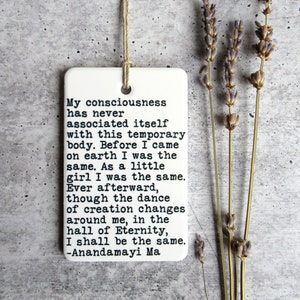 My consciousness
has never
associated itself
with this temporary
body. Before I came
on earth I was the
same. As a little
girl I was the same.
Ever afterward,
though the dance
of creation changes
around me, in the
hall of Eternity,
I shall be the same.
-Anandamayi Ma